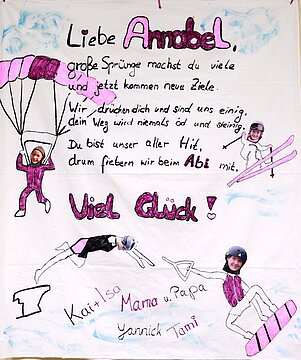 Liebe Annabel,
große Sprünge machst du viele
und jetzt kommen neue Ziele.
Wir drücken dich und sind uns einig,
dein Weg wird niemals öd und steinig.
Du bist unser aller Hit,
drum fiebern wir beim Abi mit.
Viel Glück!
Kai + Isa
Mama u. Papa
Yannick Tami